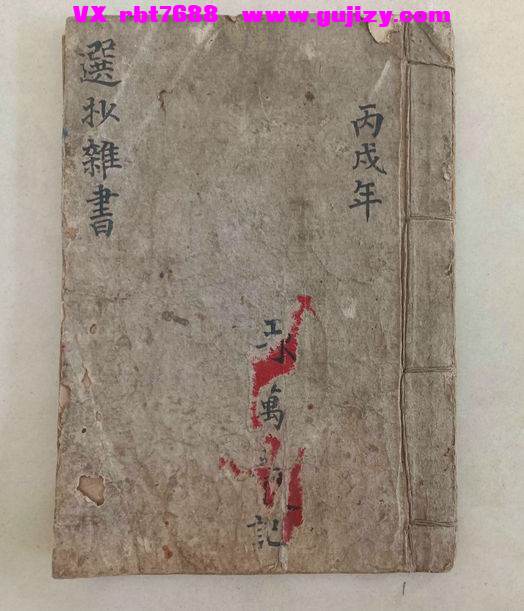 VX rbt7688 www.gujizy.com
丙戌年
萬
記
選抄雜書